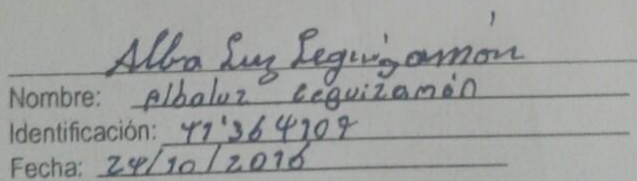 Alba Luz Leguizamón
Nombre: Albaluz Leguizamón
Identificación: 41'364109
Fecha: 24/10/2016